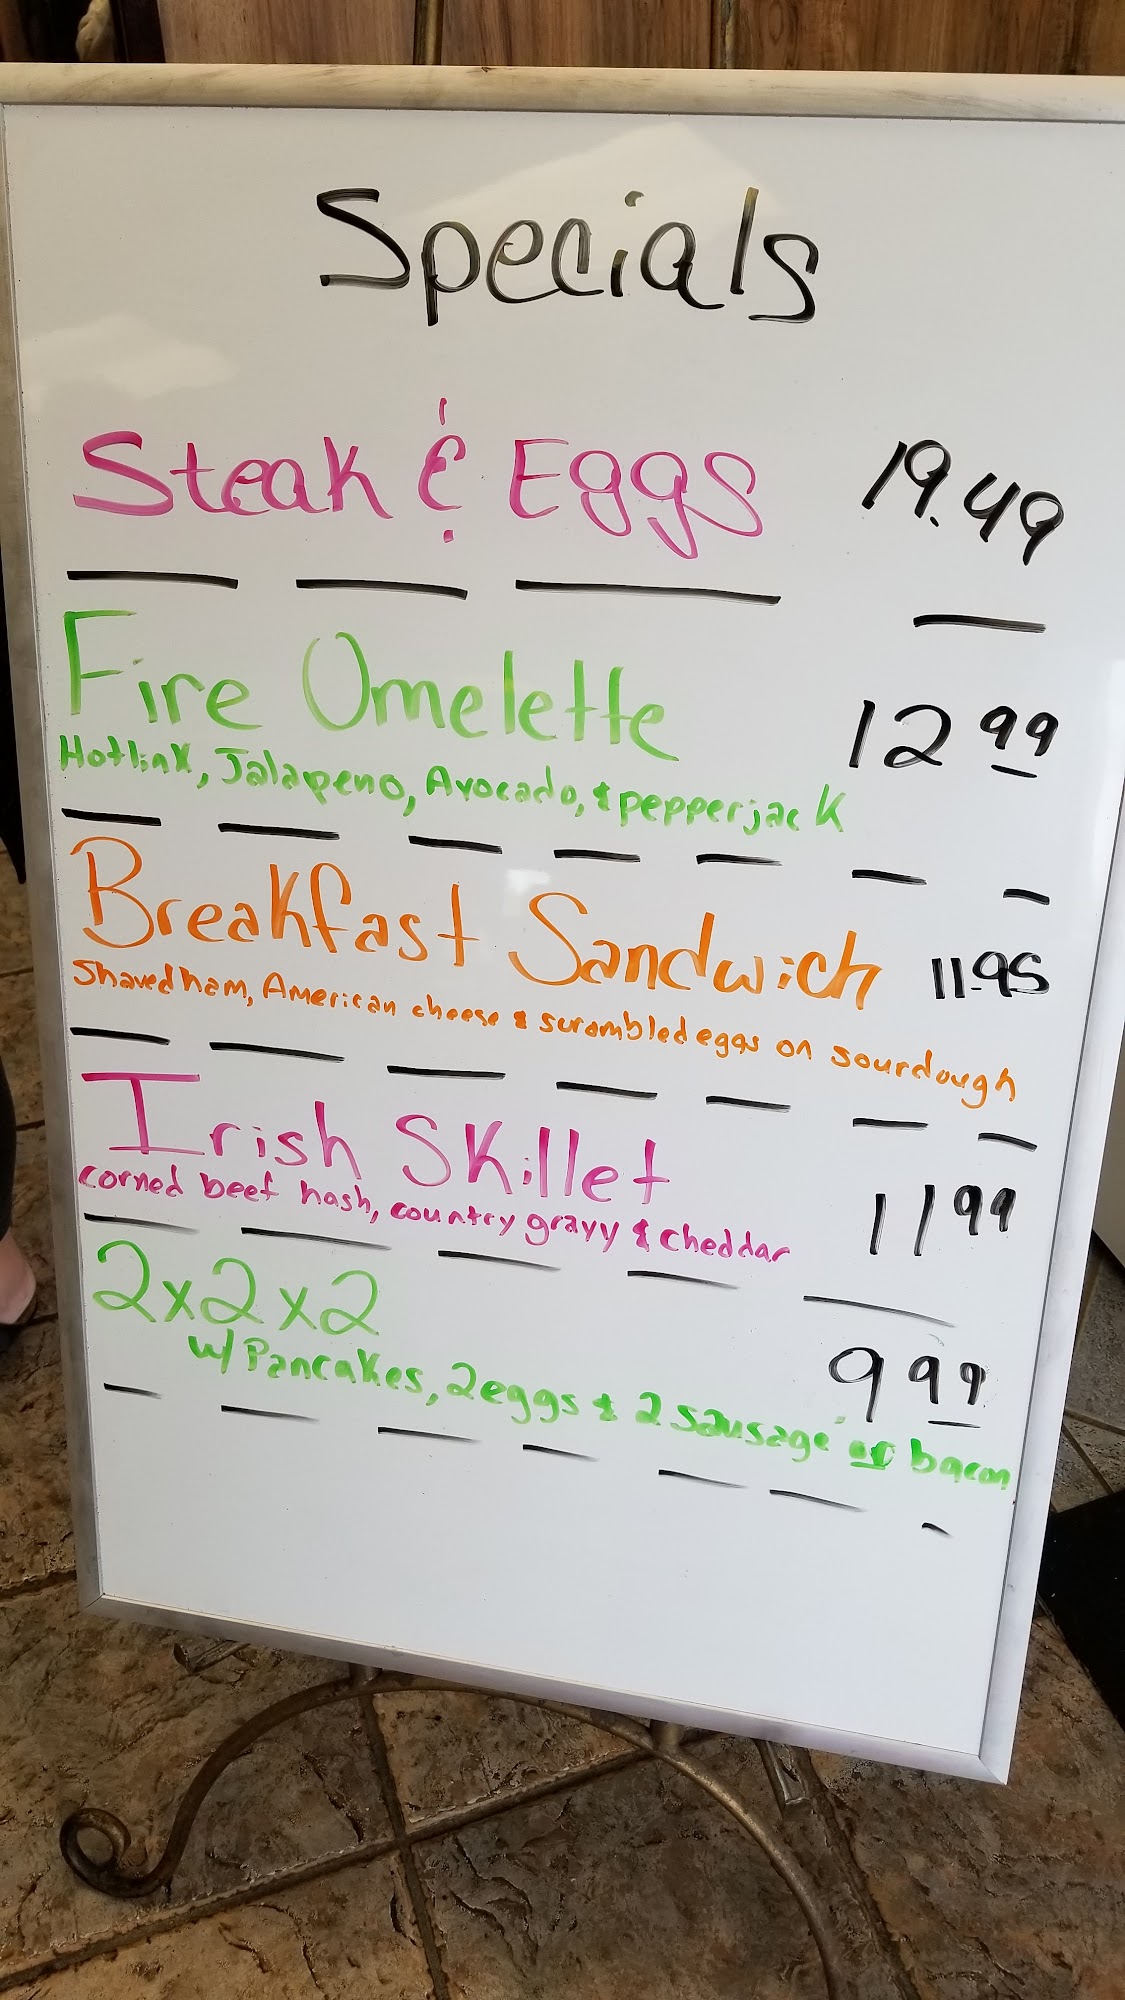 Specials
Steak & Eggs 19.49
Fire Omelette 12 99
Hotlink, Jalapeno, Avocado, & pepperjack
Breakfast Sandwich 11.95
Shaved ham, American cheese & scrambled eggs on sourdough
Irish Skillet 11 99
corned beef hash, country gravy & cheddar
2x2x2 9 99
w/ Pancakes, 2 eggs & 2 sausage or bacon